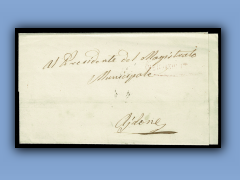 Al Presidente del Magistrato
Municipale